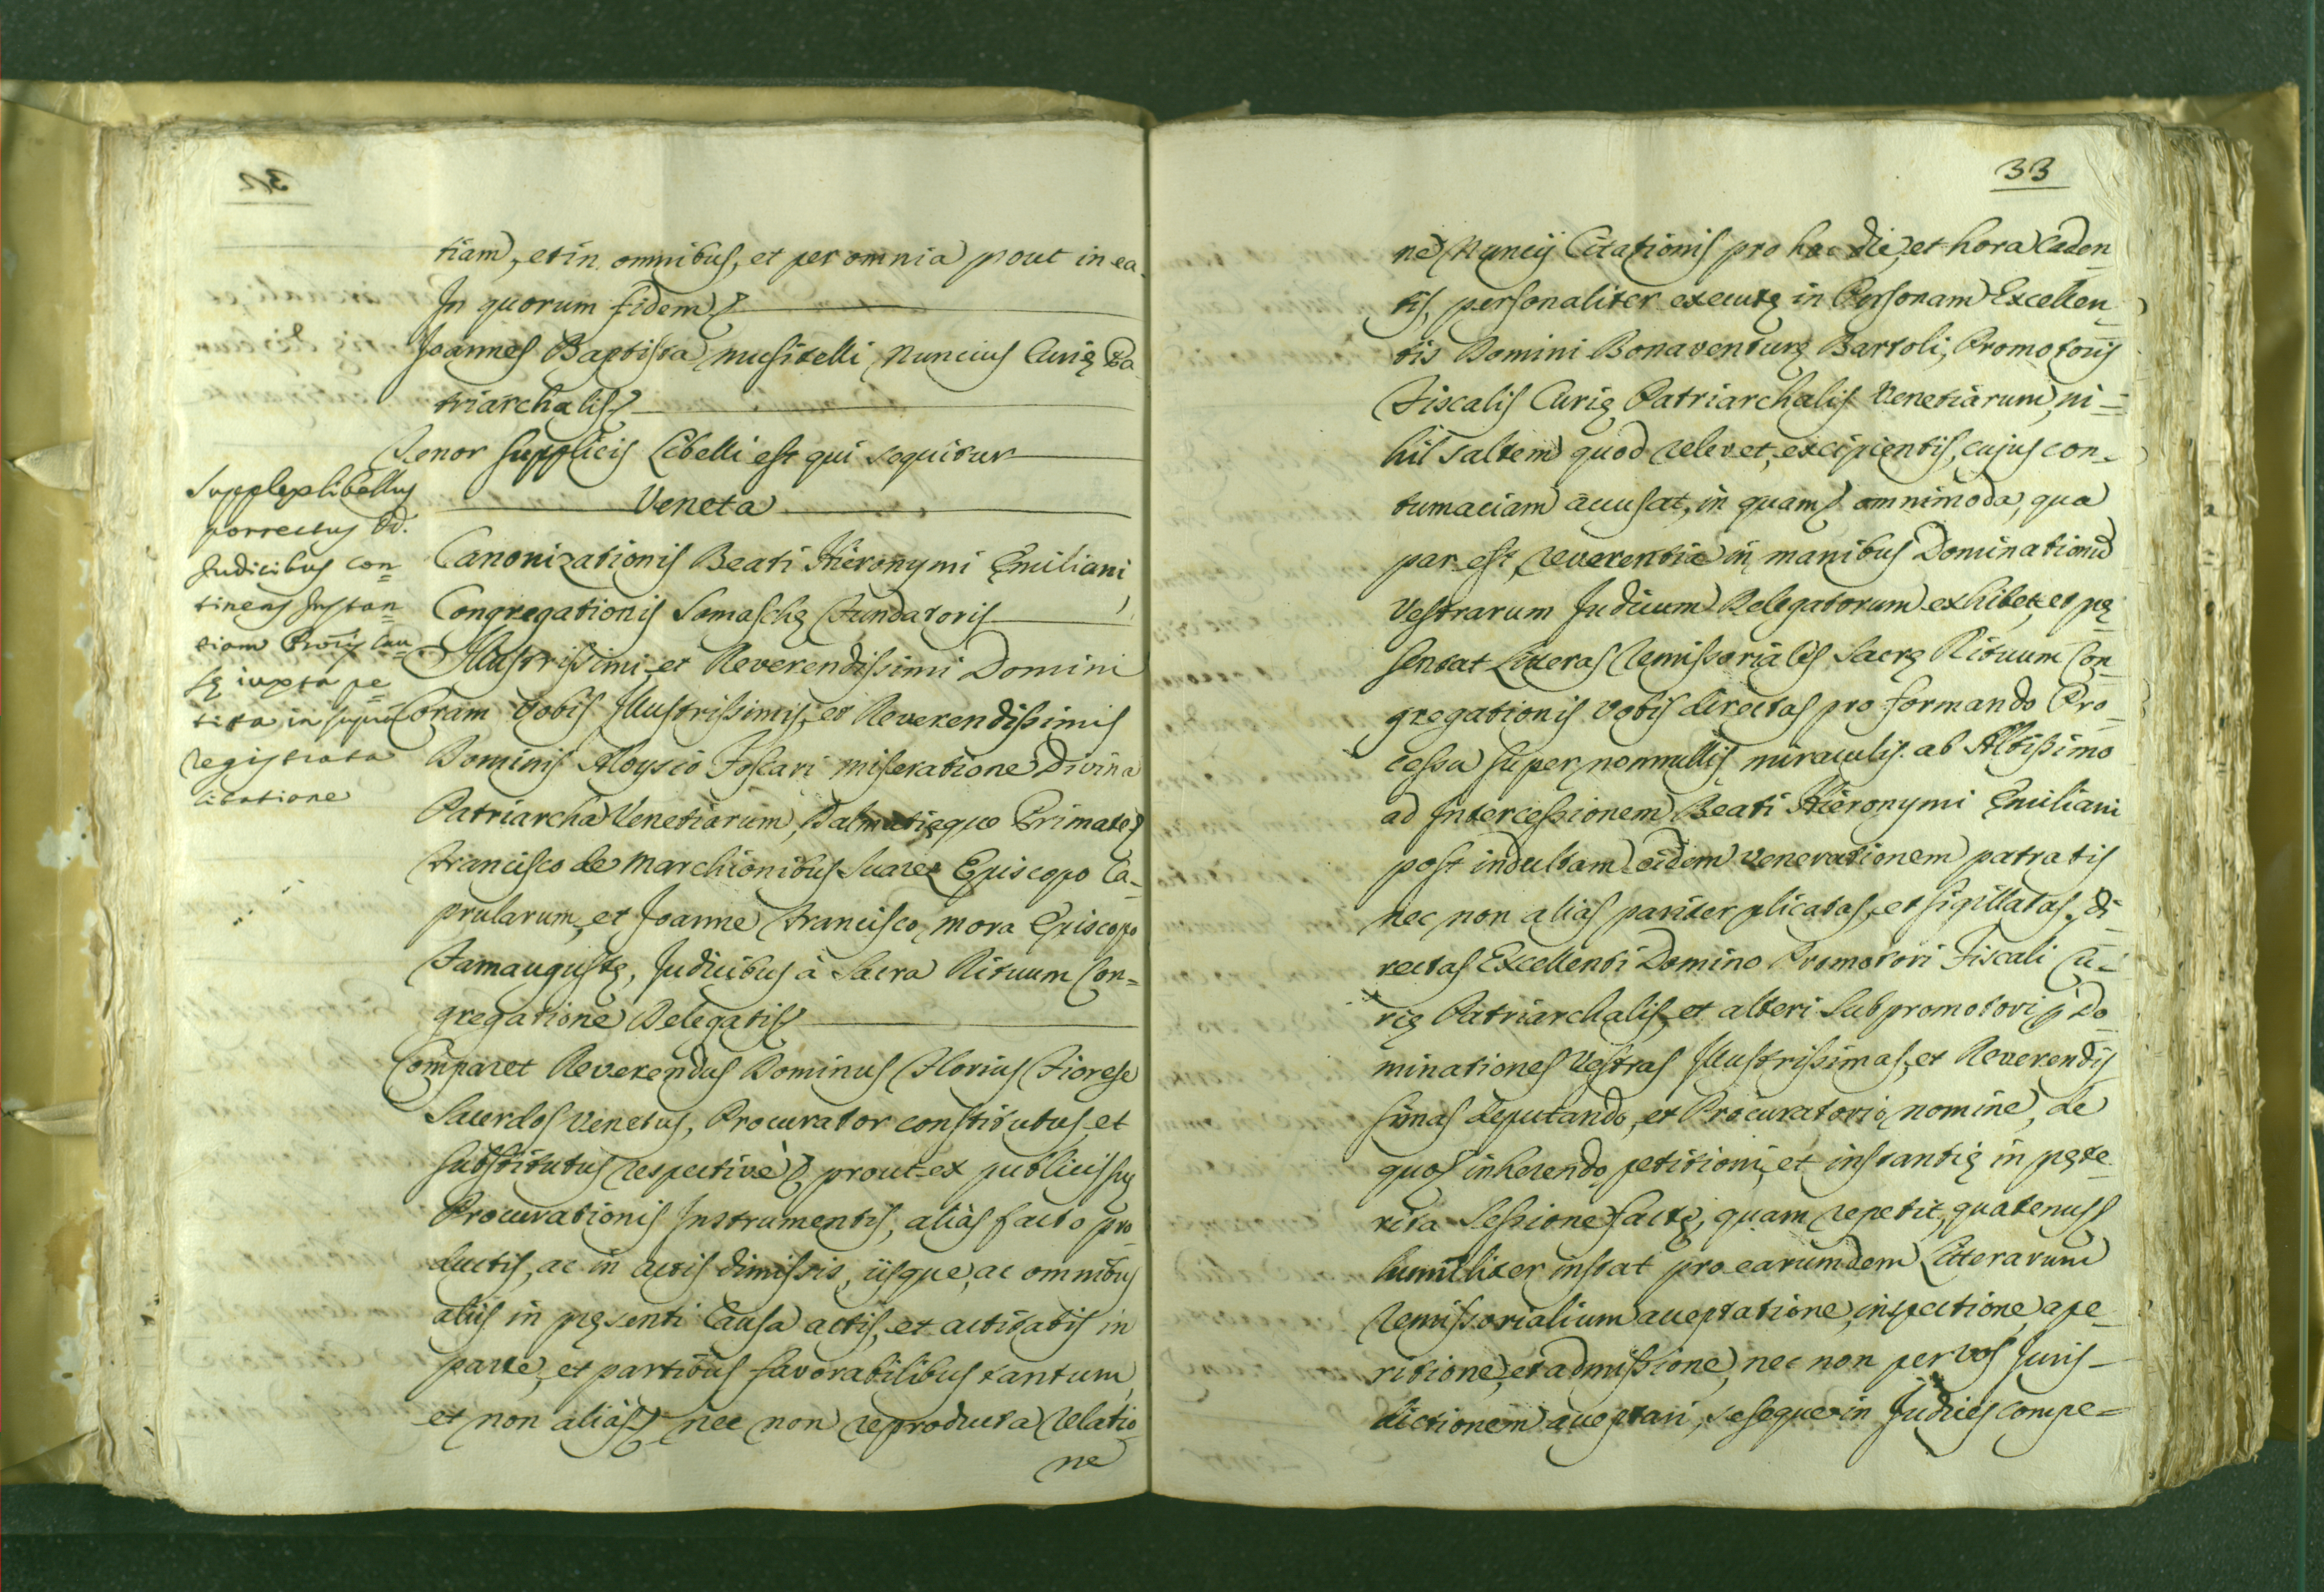 tiam, et in omnibus, et per omnia prout in ea.
In quorum fidem &
Joannes Baptista Musitelli Nuncius Curię Pa
triarchalis &
Tenor supplicis Libelli est qui sequitur
Veneta
Canonizationis Beati Hieronymi Ęmiliani
Congregationis Somaschę Fundatoris
Illustrissimi, et Reverendissimi Domini
Coram Vobis Illustrissimis, et Reverendissimis
Dominis Aloysio Foscari miseratione Divina
Patriarcha Venetiarum, Dalmatięque Primate &
Francisco de Marchionibus Suarez Episcopo Ca-
prularum, et Joanne Francisco Mora Episcopo
Famaugustę, Judicibus à Sacra Rituum Con=
gregatione Delegatis &
Comparet Reverendus Dominus Florius Fiorese
Sacerdos Venetus, Procurator constitutus, et
substitutus respectivè & prout ex publicis suę
Procurationis Instrumentis, aliàs facto pro
ductis, ac in actis dimissis, iisque, ac omnibus
aliis in pręsenti Causa actis, et actitatis in
parte, et partibus favorabilibus tantum,
et non aliàs & nec non reproducta relatio
ne
Supplex libellus
porrectus DD.
Judicibus con
tinens Instan
tiam
Cau
sę iuxta pe
tita in
registrata
citatione
33
ne Nuncij Citationis pro hac die, et hora Caden
tis, personaliter executę in Personam Excellen
tis Domini Bonaventurę Bartoli, Promotoris
Fiscalis Curię Patriarchalis Venetiarum, ni=
hil saltem quod relevet, excipientis, cujus con-
tumaciam accusat, in quam & omnimoda, qua
par est, reverentia in manibus Dominationū
Vestrarum Judicum Delegatorum exhibet, et pę
sentat Literas remissoriales Sacrę Rituum Con
gregationis vobis directas pro formando Pro
cessu super nonnullis miraculis ab Altissimo
ad Intercessionem Beati Hieronymi Ęmiliani
post indultam eidem venerationem patratis
nec non alias pariter plicatas, et sigillatas, di
rectas Excellenti Domino Promotori Fiscali Cu-
rię Patriarchalis, et alteri Subpromotori p Do
minationes Vestras Illustrissimas, et Reverendis
simas deputando, et Procuratorio nomine, de
quo & inherendo petitioni, et instantię in pęte
rita Sessione factę, quam repetit, quatenus &
humiliter instat pro earumdem Litterarum
remissorialium acceptatione, inspectione, ape
ritione, et admissione, nec non per vos Juris-
dictionem acceptari, seseque in Judices compe=